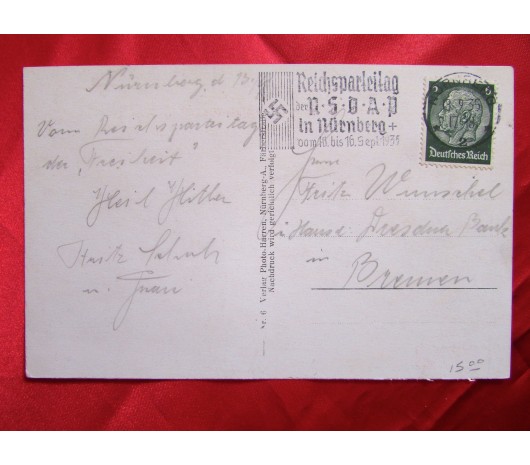 Nürnberg, d. 13.
Vom Reichsparteitag
der "Freiheit"
Heil Hitler
Fritz
u. Frau
Nr. 6 Verlag Photo-Nürnberg-A.,
Nachdruck wird gerichtlich verfolgt
Reichsparteitag
der N·S·D·A·P
in Nürnberg +
vom 10. bis 16. Sept. 1935
5
5
Deutsches Reich
Herrn
Fritz Wunschel
in Hause Dresdner Bank
in
Bremen
15 00